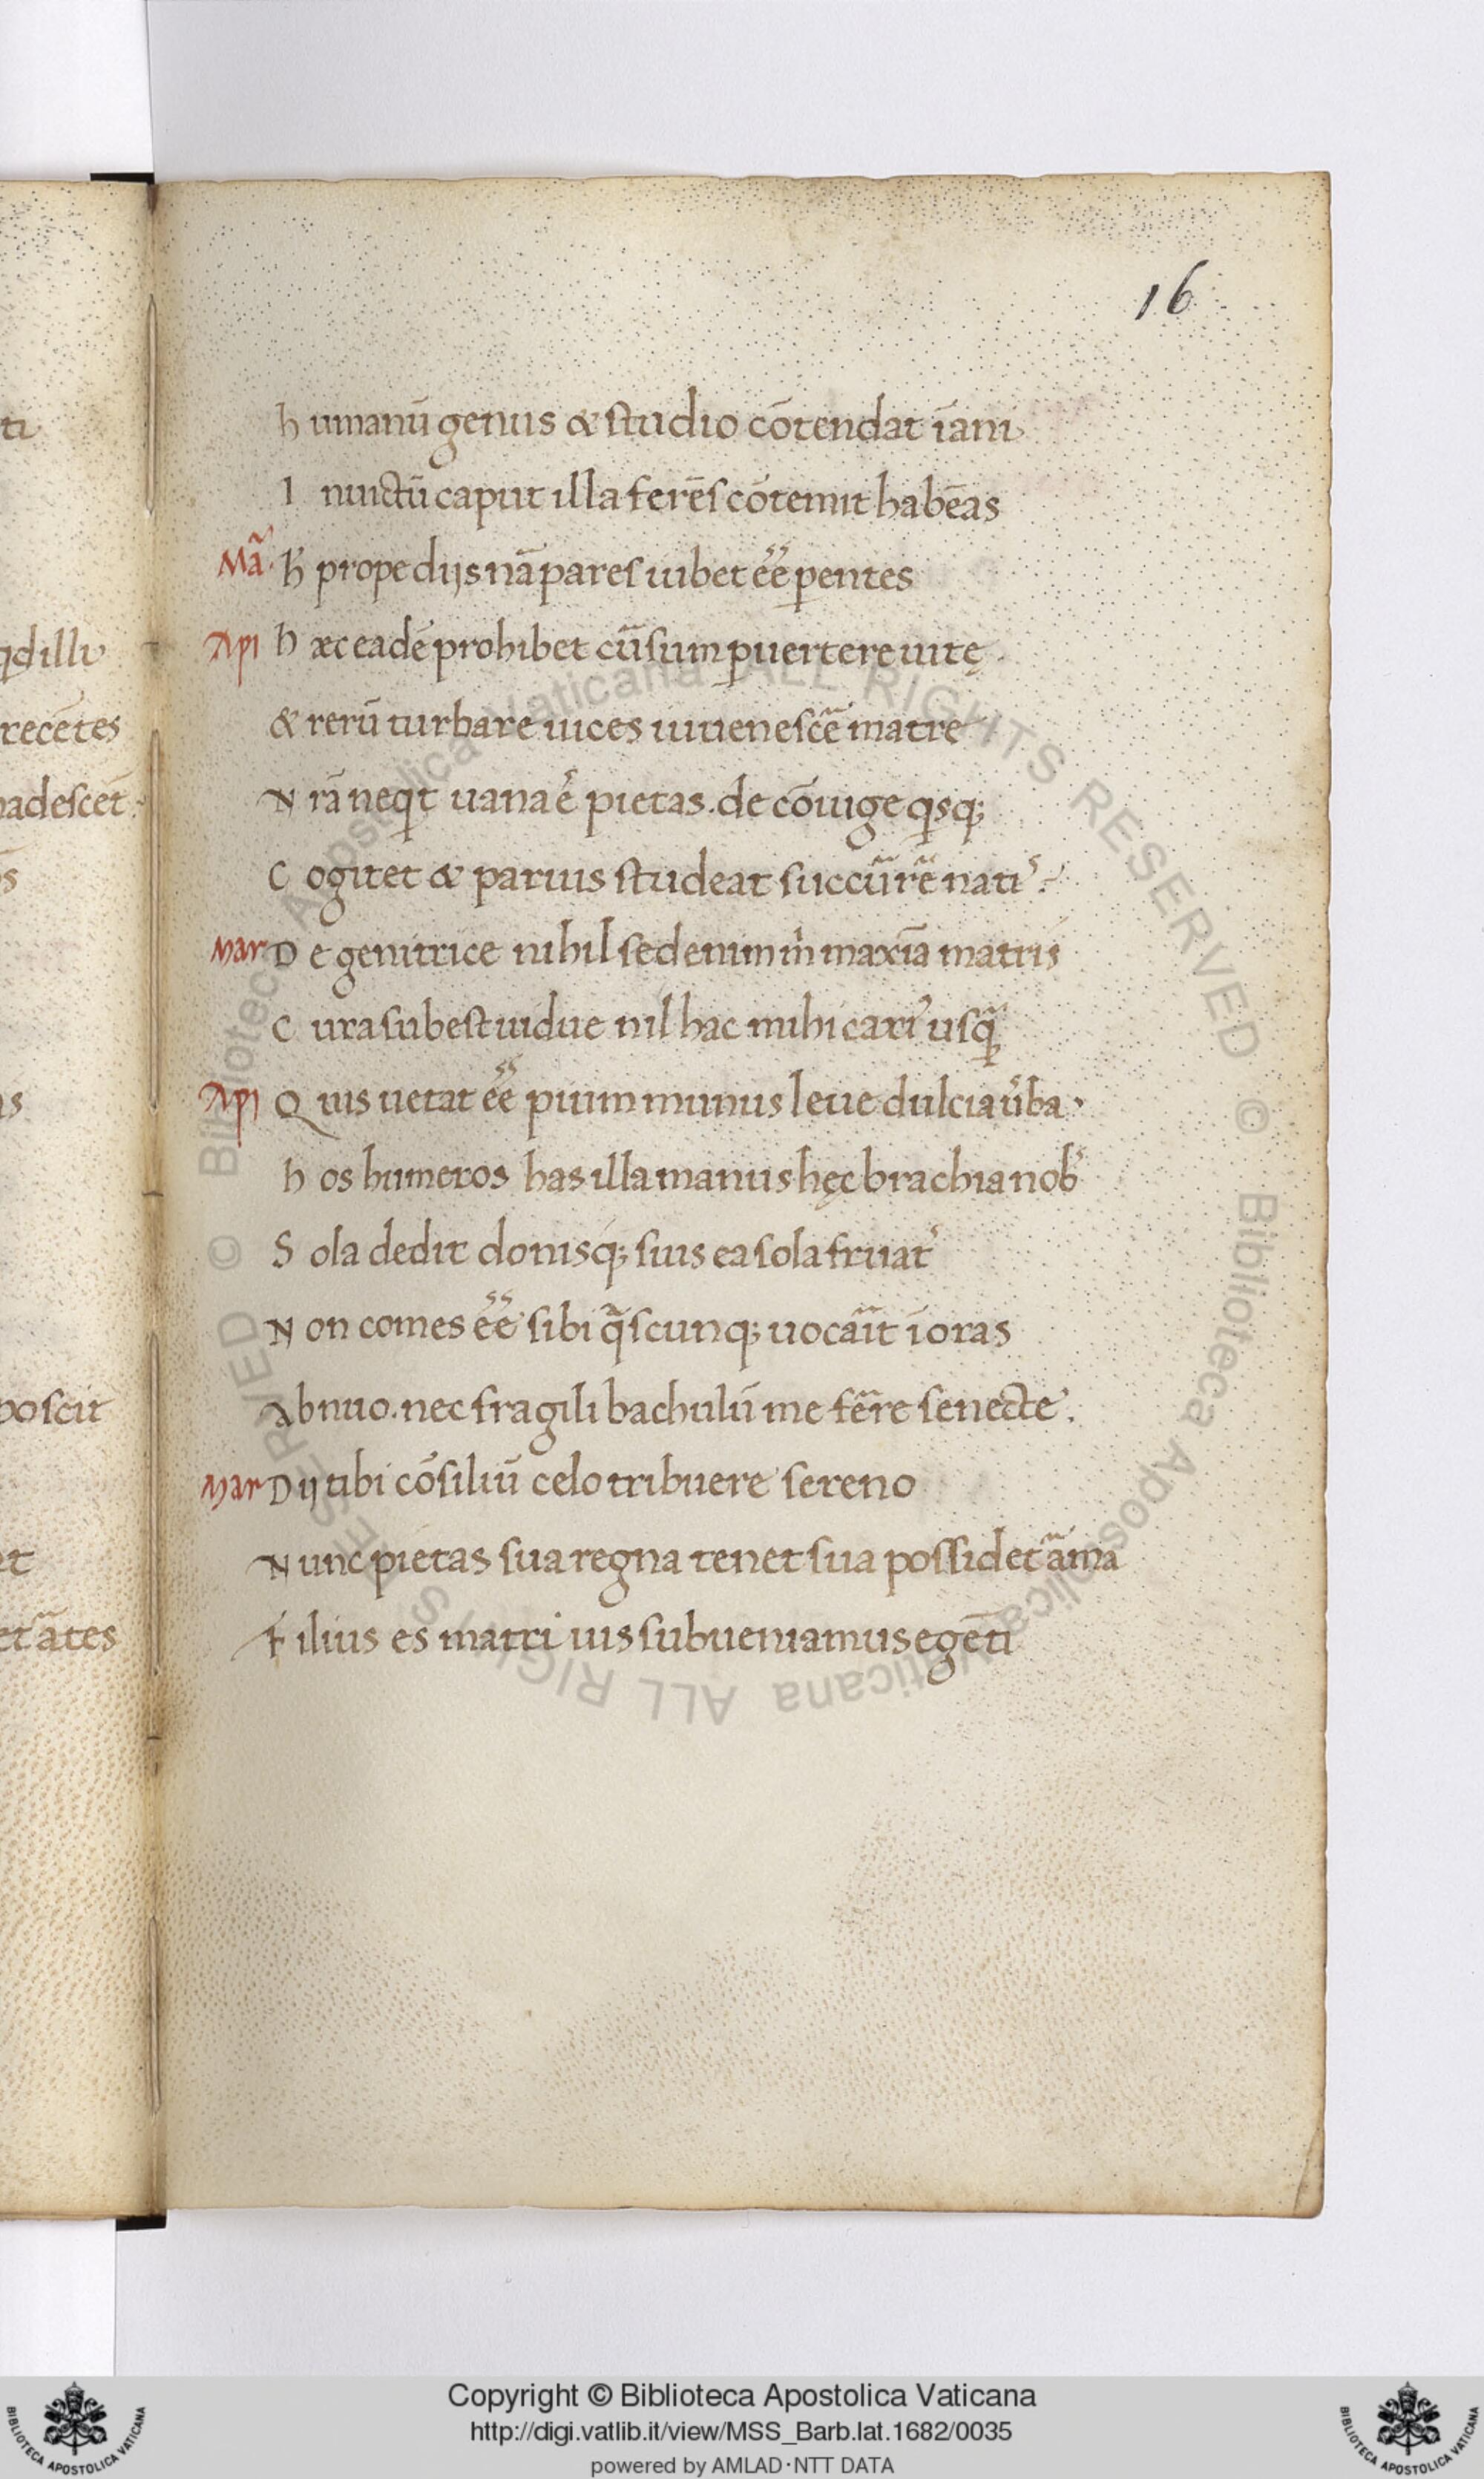 ti
qd illi
recētes
madescet
ōs
is
poscit
et
et ātes
16
h umanū genus & studio cōtendat īani
I nuictū caput illa ferēs cōtemit habēas
Mã. h' prope dijs nā pares iubet eẽ pentes
Api h æc eadē prohibet cũsum puertere uitę
& rerū turbare uices iuuenescẽ matre
N rā neqt uana ē pietas. de cōiuge qsq;
C ogitet & paruis studeat succũrẽ nati'.
Mar D e genitrice nihil sed enim m maxīa matris
C ura subest uidue nil hac mihi cari' usq̃
Api Q uis uetat eẽ pium munus leue dulcia uba.
h os humeros has illa manus hęc brachia nob'
S ola dedit donisq; suis ea sola fruat'
N on comes eẽ sibi qscunq; uocãit ī oras
Abnuo. nec fragili bachulū me fẽre senecte.
Mar D ij tibi cōsiliū celo tribuere sereno
N unc pietas sua regna tenet sua possidet ãma
F ilius es matri uis subueniamus egēti
© Biblioteca Apostolica Vaticana ALL RIGHTS RESERVED © Biblioteca Apostolica Vaticana ALL RIGHTS RESERVED
BIBLIOTECA APOSTOLICA VATICANA
Copyright © Biblioteca Apostolica Vaticana
http://digi.vatlib.it/view/MSS_Barb.lat.1682/0035
powered by AMLAD·NTT DATA
BIBLIOTECA APOSTOLICA VATICANA